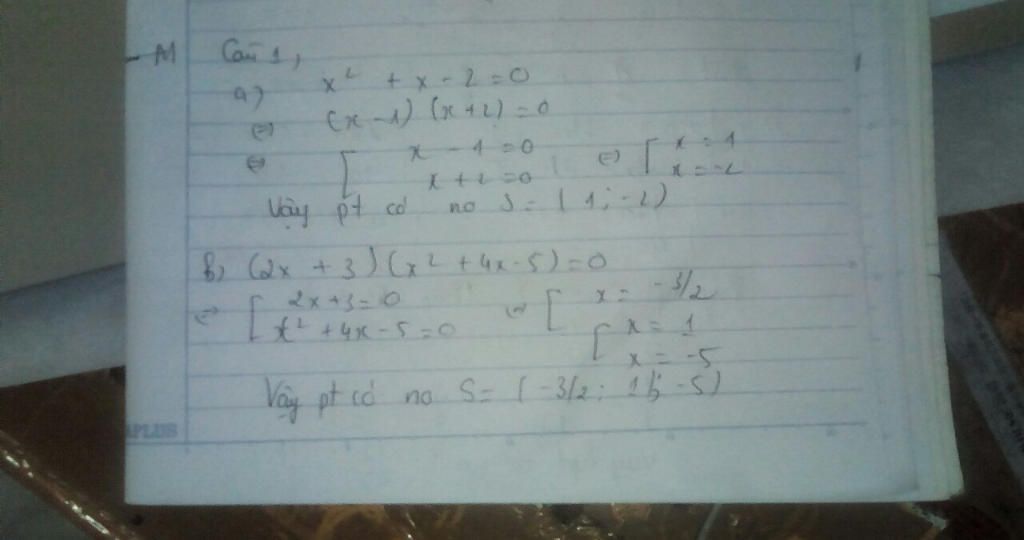 Câu 1,
a) x² + x - 2 = 0
⇔ (x - 1) (x + 2) = 0
⇔ [ x - 1 = 0 ⇔ [ x = 1
x + 2 = 0 x = -2
Vậy pt có no S = ( 1 ; -2 )
b) (2x + 3) (x² + 4x - 5) = 0
⇔ [ 2x + 3 = 0 ⇔ [ x = -3/2
x² + 4x - 5 = 0 [ x = 1
x = -5
Vậy pt có no S = ( -3/2 ; 1 ; -5 )
APLUS